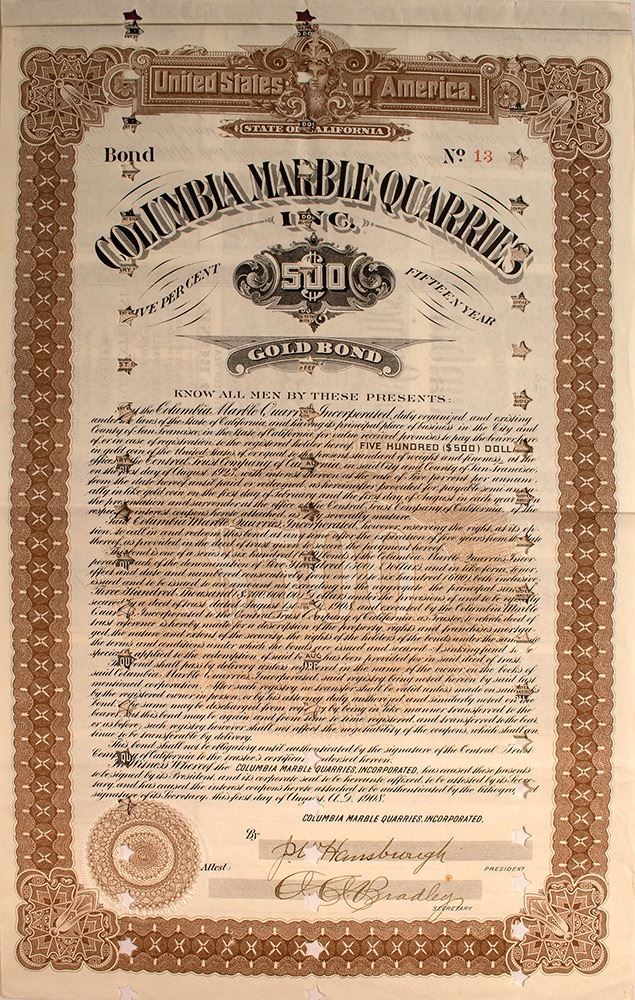 United States of America.
STATE OF CALIFORNIA
Bond No. 13
COLUMBIA MARBLE QUARRIES
INC.
FIVE PER CENT 500 FIFTEEN YEAR
GOLD BOND
KNOW ALL MEN BY THESE PRESENTS:
the Columbia Marble Quarries Incorporated, duly organized and existing
under laws of the State of California and having its principal place of business in the City and
County of San Francisco in the State of California, for value received promises to pay the bearer
or in case of registration, to the registered holder hereof, FIVE HUNDRED ($500) DOLL
in gold coin of the United States of or equal to the present standard of weight and fineness, at the
office Central Trust Company of California, in said City and County of San Francisco
on the first day of August 1923, with interest thereon at the rate of five per cent per annum
from the date hereof until paid or redeemed, as hereinafter provided for, payable semi-annu-
ally in like gold coin on the first day of February and the first day of August in each year
the presentation and surrender at the office of the Central Trust Company of California, of the
respective interest coupons hereto attached as they severally mature.
Said Columbia Marble Quarries Incorporated, however, reserving the right, at its op-
tion, to call in and redeem this bond, at any time after the expiration of five years from the date
thereof, as provided in the deed of trust given to secure the payment hereof.
This bond is one of a series of six hundred bonds of the Columbia Marble Quarries Incor-
porated, of the denomination of Five Hundred Dollars, and in like form, tenor
effect and date and numbered consecutively from one to six hundred (600) both inclusive
issued and to be issued to an amount not exceeding in the aggregate the principal sum
Three Hundred Thousand Dollars under the provisions of and to be equally
secured by a deed of trust, dated August 1st 1908, and executed by the Columbia Marble
Quarries Incorporated to the Central Trust Company of California, as Trustee, to which deed of
trust reference is hereby made for a description of the property, rights and franchises mortga-
ged, the nature and extent of the security, the rights of the holders of the bonds under the same and
the terms and conditions under which the bonds are issued and secured. A sinking fund is to
applied to the redemption of said bonds has been provided for in said deed of trust.
This bond shall pass by delivery unless registered in the name of the owner on the books of
said Columbia Marble Quarries Incorporated, said registry being noted hereon by said
mentioned corporation. After such registry no transfer shall be valid unless made on said books
by the registered owner in person, or by his attorney duly authorized, and similarly noted on the
bond, the same may be discharged from registry by being in like manner transferred to the
bearer. But this bond may be again and from time to time registered, and transferred to the bearer
or as before, such registry however shall not affect the negotiability of the coupons, which shall con-
tinue to be transferable by delivery.
This bond shall not be obligatory until authenticated by the signature of the Central Trust
Company of California to the trustee's certificate endorsed hereon.
In Witness Whereof the COLUMBIA MARBLE QUARRIES, INCORPORATED, has caused these presents
to be signed by its President, and its corporate seal to be hereunto affixed, to be attested by its Secre-
tary, and has caused the interest coupons hereto attached to be authenticated by the lithographed
signature of its Secretary, this first day of August, A.D. 1908.
COLUMBIA MARBLE QUARRIES, INCORPORATED.
By J.W. Hansbrough
PRESIDENT
Attest: Bradley
SECRETARY